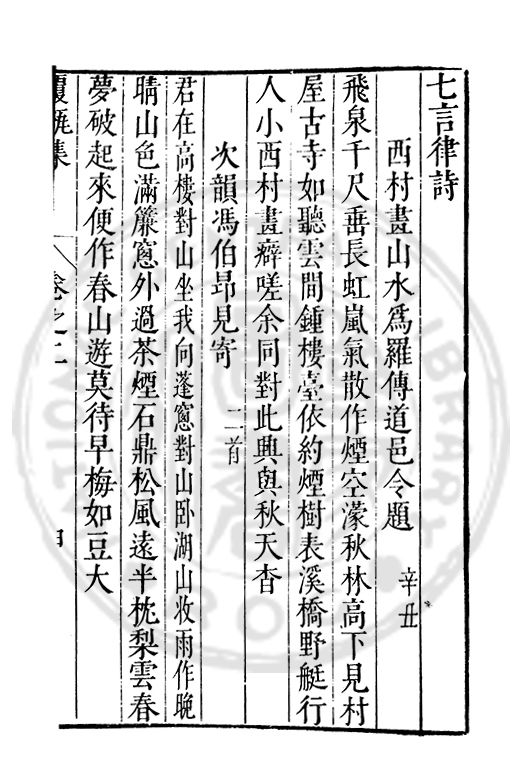 七言律詩
西村畫山水爲羅傳道邑令題 辛丑
飛泉千尺垂長虹嵐氣散作煙空濛秋林高下見村
屋古寺如聽雲間鍾樓臺依約煙樹表溪橋野艇行
人小西村畫癖嗟余同對此興與秋天杳
次韻馮伯昻見寄 二首
君在高樓對山坐我向蓬窻對山卧湖山收雨作晚
晴山色滿簾窻外過茶煙石鼎松風遠半枕梨雲春
夢破起來便作春山遊莫待早梅如豆大
集 卷之二